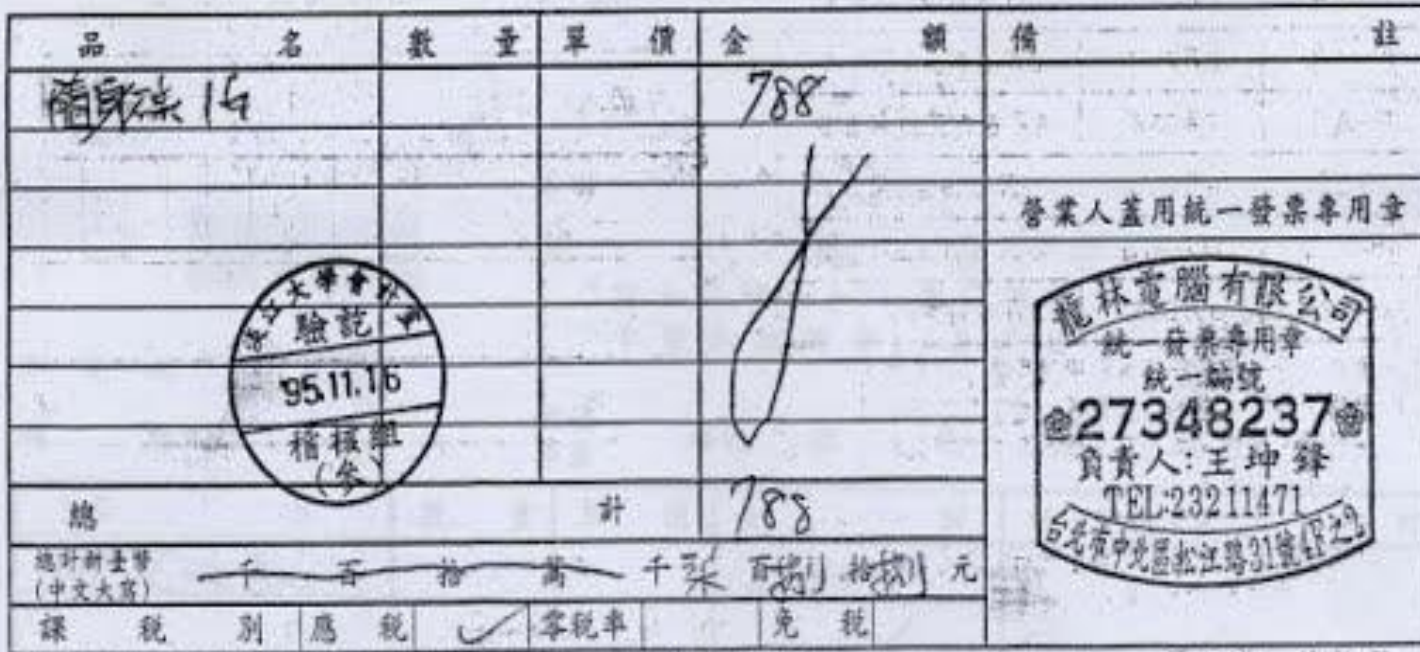 品名 數量 單價 金額 備註
隨身碟 1G 788
營業人蓋用統一發票專用章
淡江大學會計室
驗訖
95.11.16
稽核組
(參)
龍林電腦有限公司
統一發票專用章
統一編號
27348237
負責人:王坤鋒
TEL:23211471
台北市中北區松江路31號4F之2
總計 788
總計新臺幣
(中文大寫) 千 百 拾 萬 千 柒 百 捌 拾 捌 元
課稅別 應稅 ✓ 零稅率 免稅